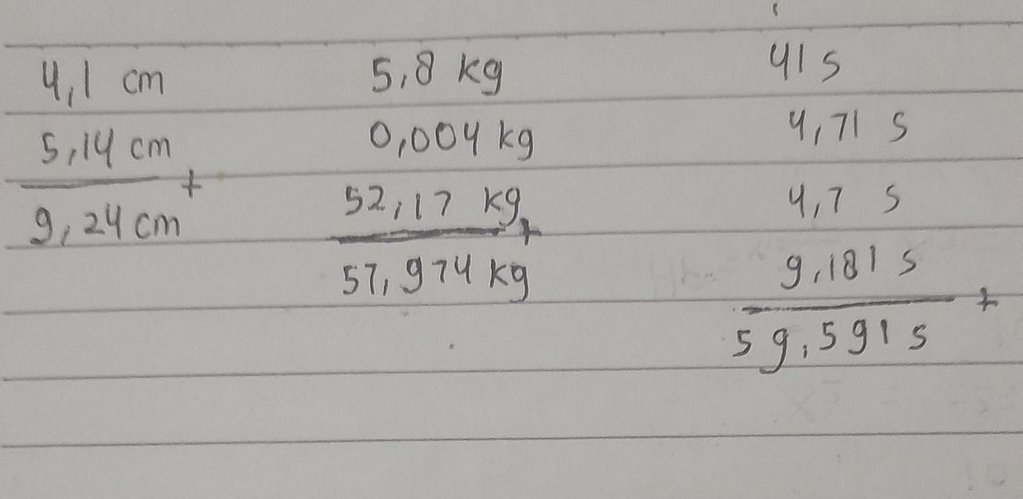 4,1 cm
5,14 cm +
9,24 cm
5,8 kg
0,004 kg
52,17 kg +
57,974 kg
41 s
4,71 s
4,7 s
9,181 s +
59,591 s